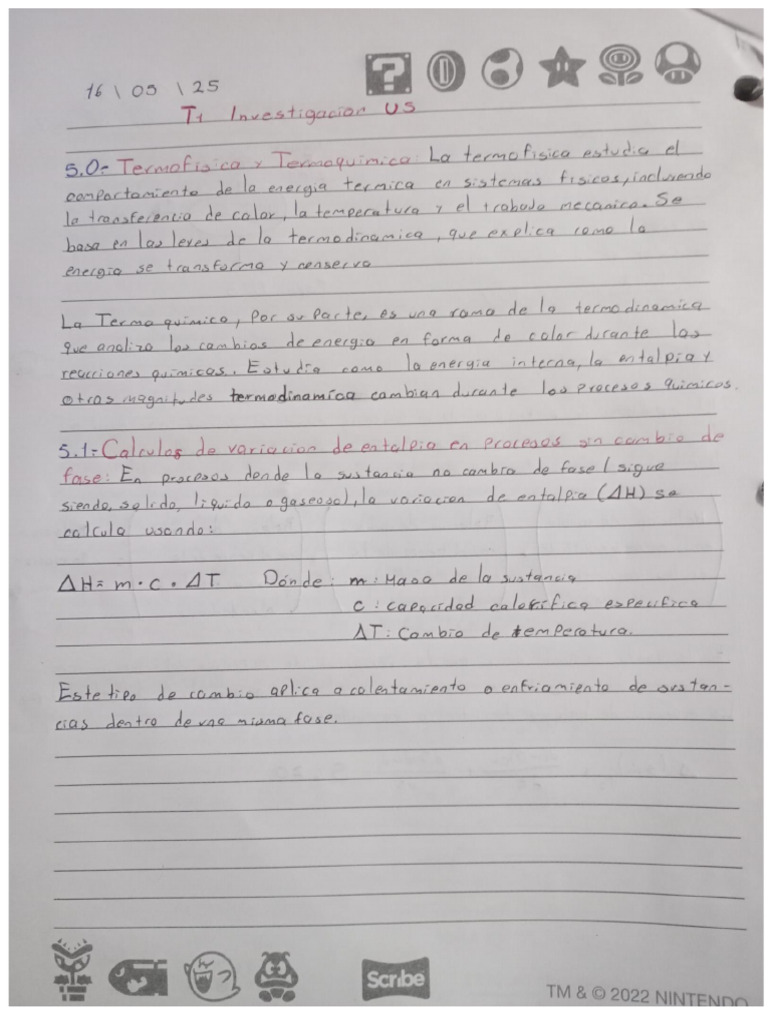 16 \ 05 \ 25
T1 Investigacion U5
5.0= Termofisica y Termoquimica: La termofisica estudia el
comportamiento de la energia termica en sistemas fisicos, incluyendo
la transferencia de calor, la temperatura y el trabado mecanico. Se
basa en las leyes de la termodinamica, que explica como la
energia se transforma y conserva
La Termoquimica, Por su Parte, es una rama de la termodinamica
que analiza los cambios de energia en forma de calor durante las
reacciones quimicas. Estudia como la energia interna, la entalpia y
otras magnitudes termodinamica cambian durante los procesos quimicos.
5.1= Calculos de variacion de entalpia en procesos sin cambio de
fase: En procesos donde la sustancia no cambia de fase (sigue
siendo, solido, liquido o gaseoso), la variacion de entalpia (ΔH) se
calcula usando:
ΔH= m · c · ΔT Donde: m: Masa de la sustancia
c : capacidad calorifica especifica
ΔT: Cambio de temperatura.
Este tipo de cambio aplica a calentamiento o enfriamiento de sustan-
cias dentro de una misma fase.
Scribe
TM & © 2022 NINTENDO